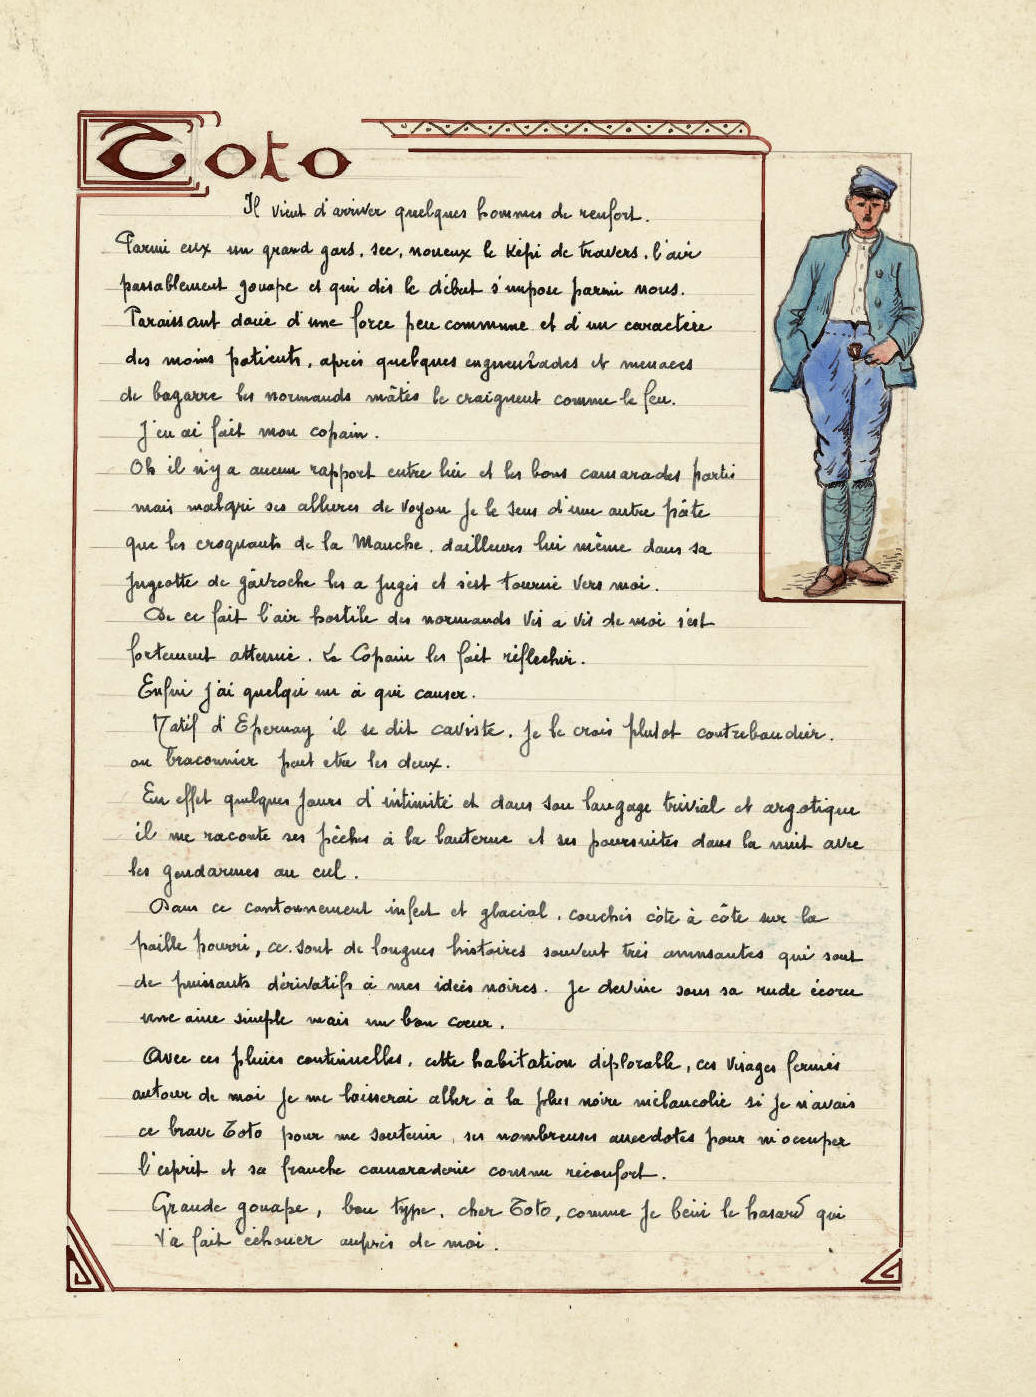 Toto
Il vient d'arriver quelques hommes de renfort.
Parmi eux un grand gars, sec, noueux le képi de travers, l'air
passablement gouape et qui dès le début s'impose parmi nous.
Paraissant doué d'une force peu commune et d'un caractère
des moins patients, après quelques engueulades et menaces
de bagarre les normands mâtés le craignent comme le feu.
J'en ai fait mon copain.
Oh il n'y a aucun rapport entre lui et les bons camarades partis
mais malgré ses allures de voyou je le sens d'une autre pâte
que les croquants de la Manche, dailleurs lui même dans sa
jugeotte de gâvroche les a jugés et s'est tourné vers moi.
De ce fait l'air hostile des normands vis a vis de moi s'est
fortement attenué. Le Copain les fait réflechir.
Enfin j'ai quelqu'un à qui causer.
Natif d'Epernay il se dit caviste. Je le crois plutot contrebandier.
ou braconnier peut etre les deux.
En effet quelques jours d'intimité et dans son langage trivial et argotique
il me raconte ses pêches à la lanterne et ses poursuites dans la nuit avec
les gendarmes au cul.
Dans ce cantonnement infect et glacial, couchés côte à côte sur la
paille pourri, ce sont de longues histoires souvent très amusantes qui sont
de puissants dérivatifs à mes idées noires. Je devine sous sa rude écorce
une ame simple mais un bon cœur.
Avec ces pluies continuelles, cette habitation déplorable, ces visages fermés
autour de moi je me laisserai aller à la plus noire mélancolie si je n'avais
ce brave Toto pour me soutenir, ses nombreuses anecdotes pour m'occuper
l'esprit et sa franche camaraderie comme réconfort.
Grande gouape, bon type, cher Toto, comme je béni le hasard qui
t'a fait échouer auprès de moi.